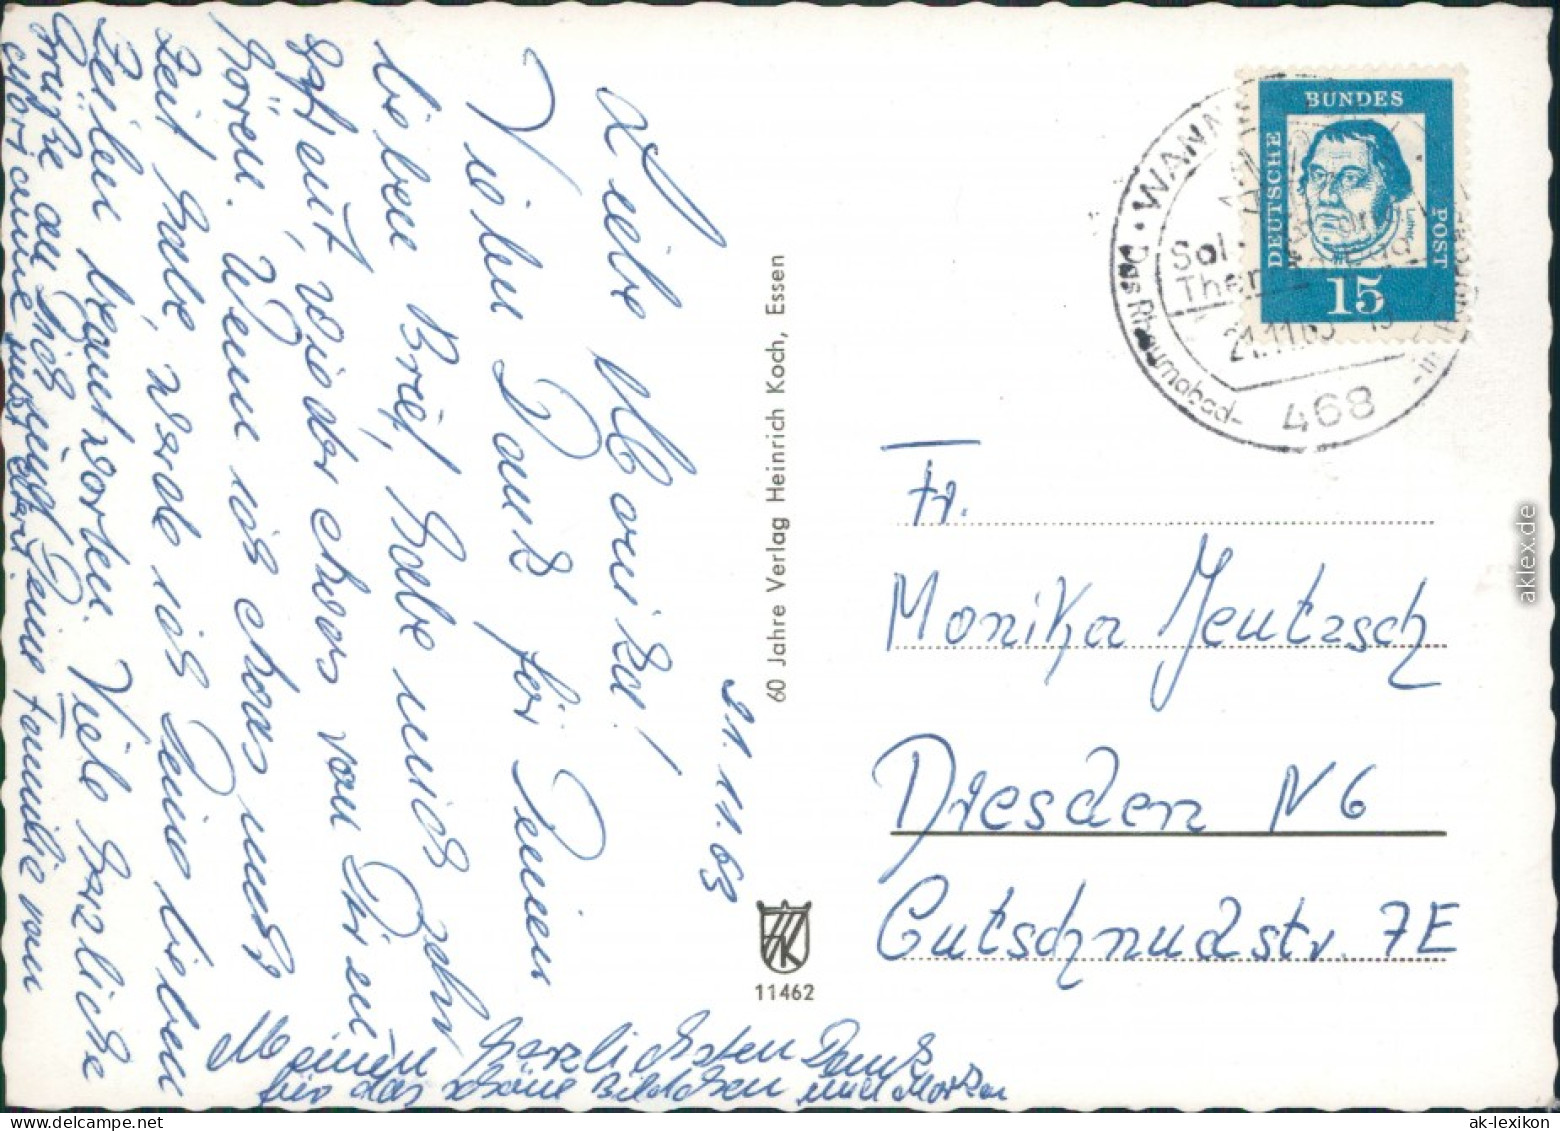 21.11.63
Liebe Monika!
Vielen Dank für Deinen
lieben Brief, habe mich sehr
gefreut, wieder etwas von Dir zu
hören. Wenn ich etwas mehr
Zeit habe, werde ich Deine lieben
Zeilen beantworten. Viele herzliche
Grüße an Dich und Deine Familie von
nebst Eltern.
Meinen herzlichsten Dank
für das schöne Bildchen und Marken
60 Jahre Verlag Heinrich Koch, Essen
HK
11462
BUNDES
DEUTSCHE
POST
Luther
15
WANN
Das Rheumabad
Sol
Ther
21.11.63
468
Fr.
Monika Jeutzsch
Dresden N 6
Gutschmidstr. 7E
aklex.de
ak-lexikon